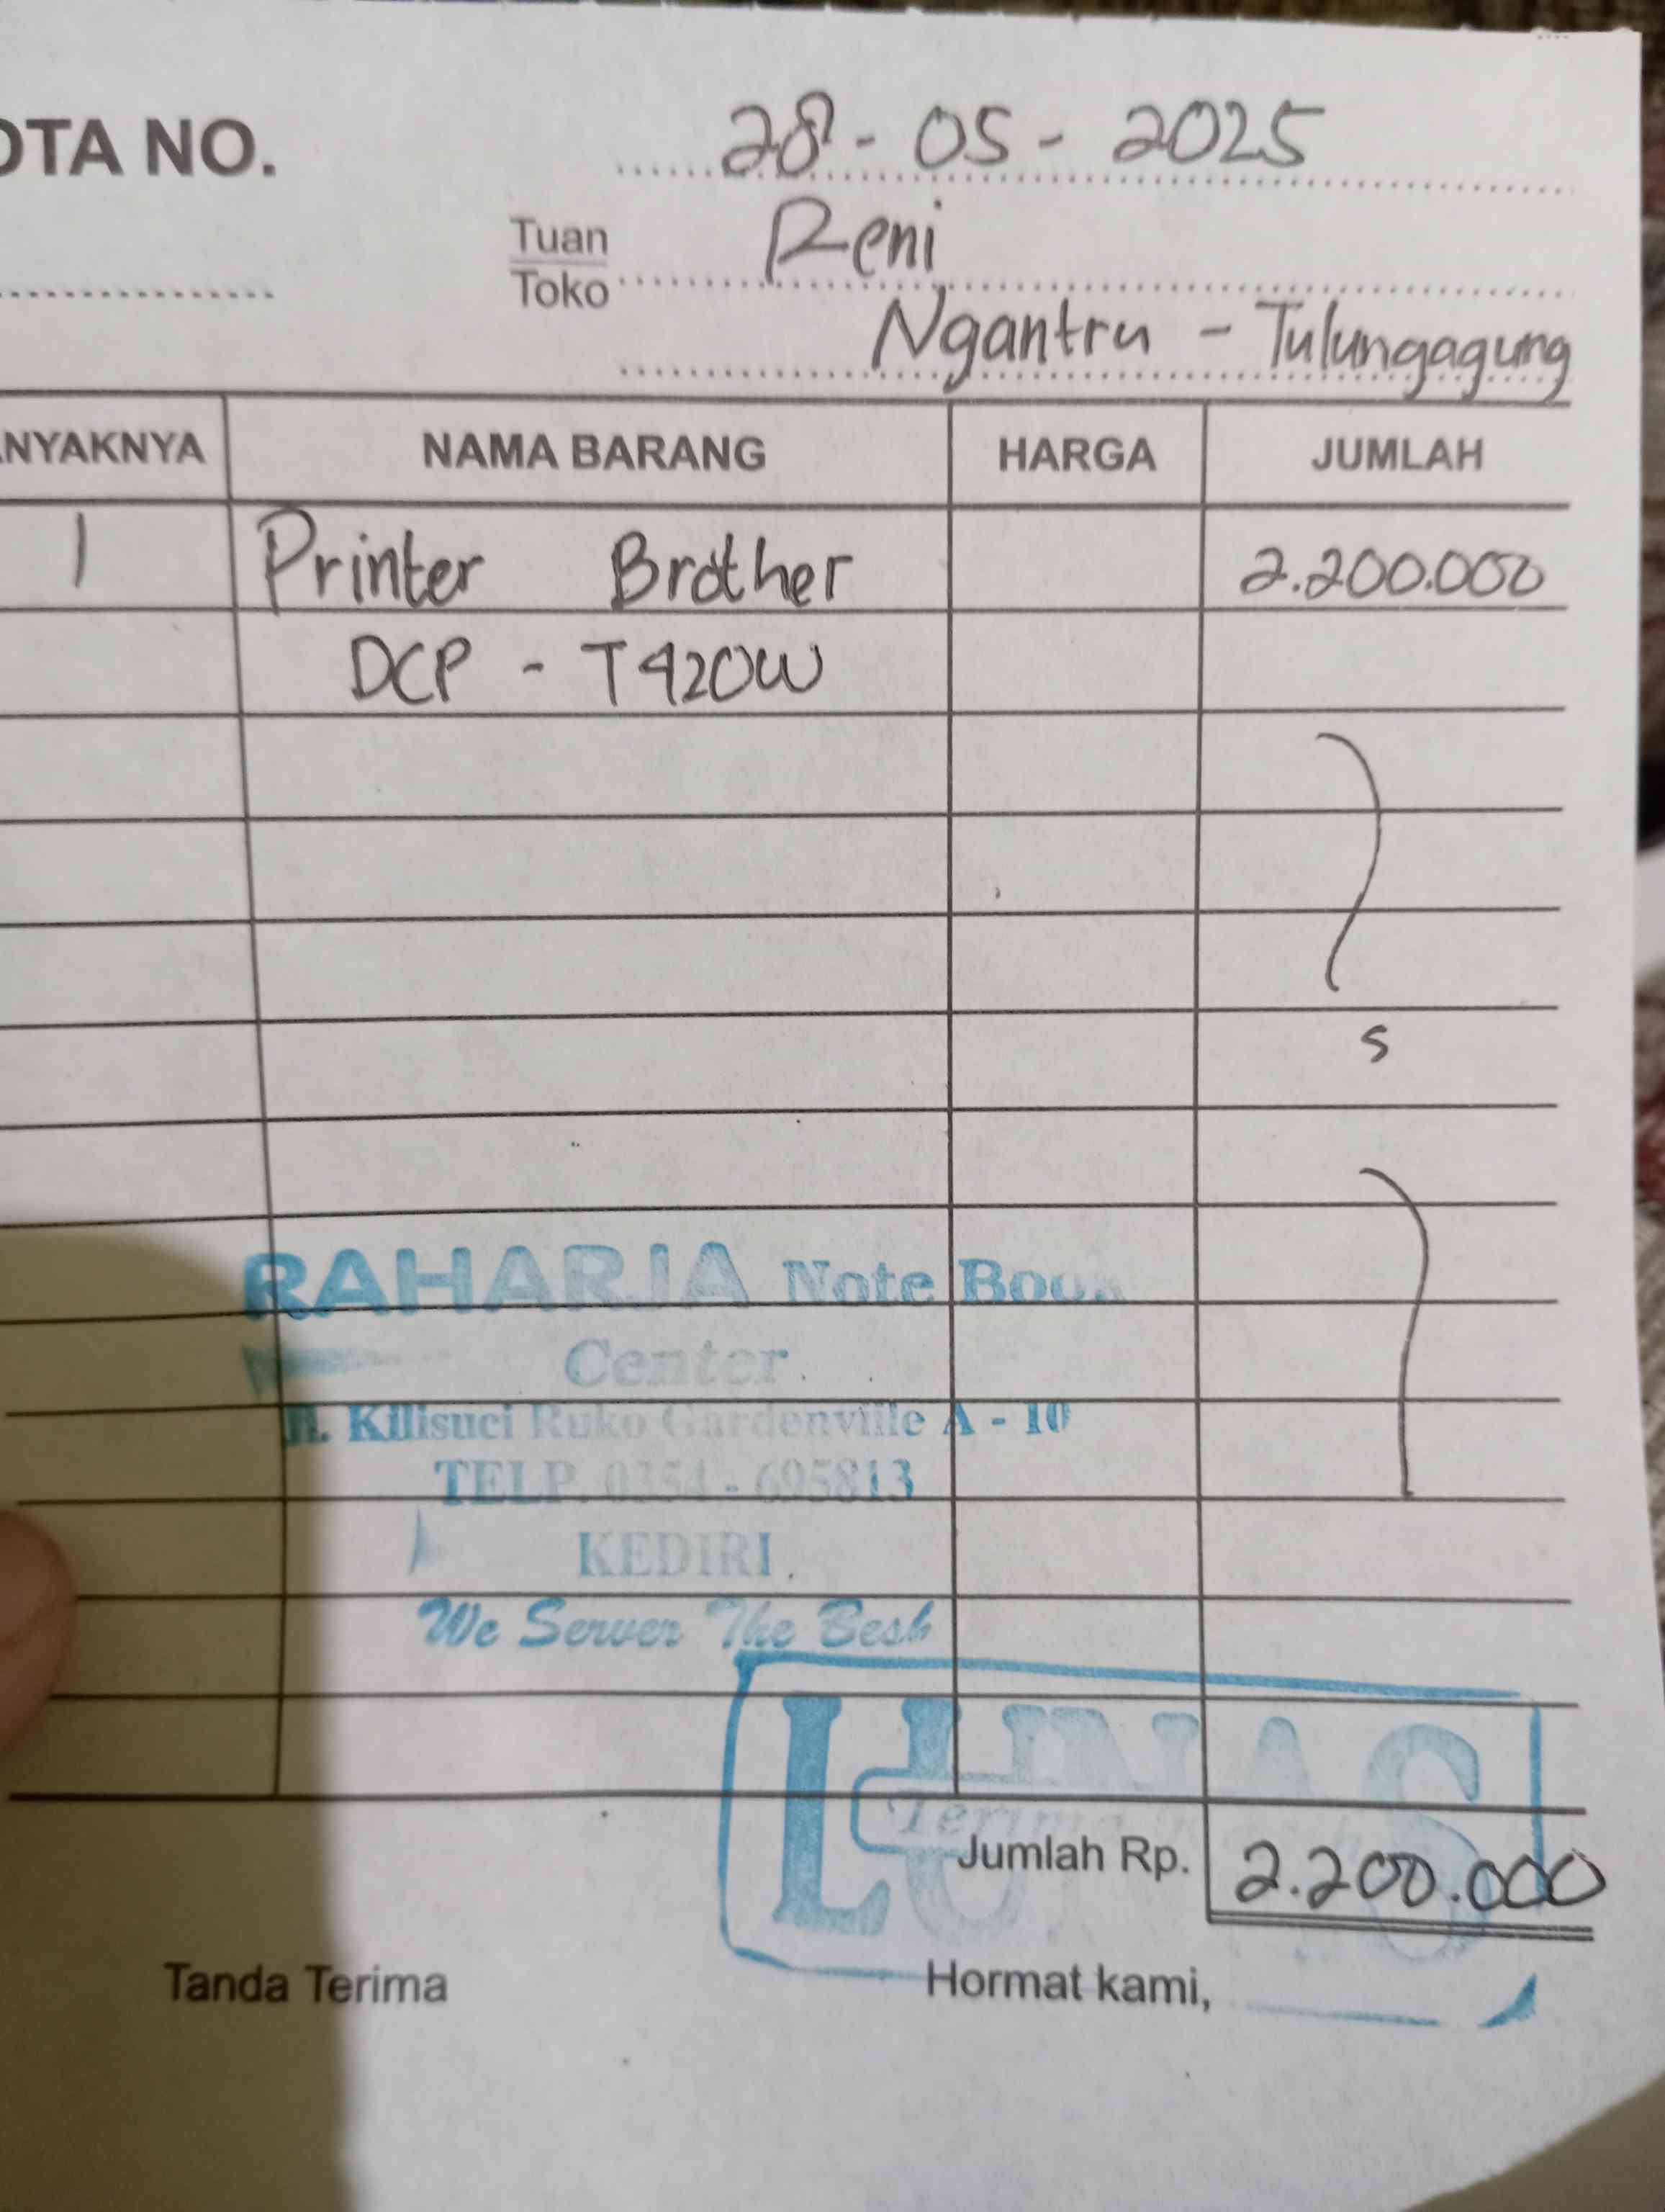 OTA NO.
28 - 05 - 2025
Tuan
Toko
Reni
Ngantru - Tulungagung
ANYAKNYA NAMA BARANG HARGA JUMLAH
1 Printer Brother 2.200.000
DCP - T420W
S
RAHARJA Note Book
Center
Jl. Kilisuci Ruko Gardenville A - 10
TELP. 0354 - 695813
KEDIRI
We Server The Besh
LUNAS
Terima
Jumlah Rp. 2.200.000
Tanda Terima Hormat kami,